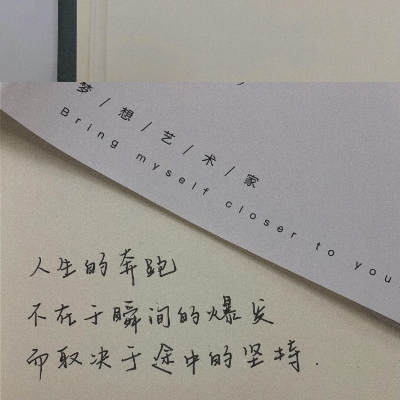 梦/想/艺/术/家
Bring myself closer to you
人生的奔跑
不在于瞬间的爆发
而取决于途中的坚持.